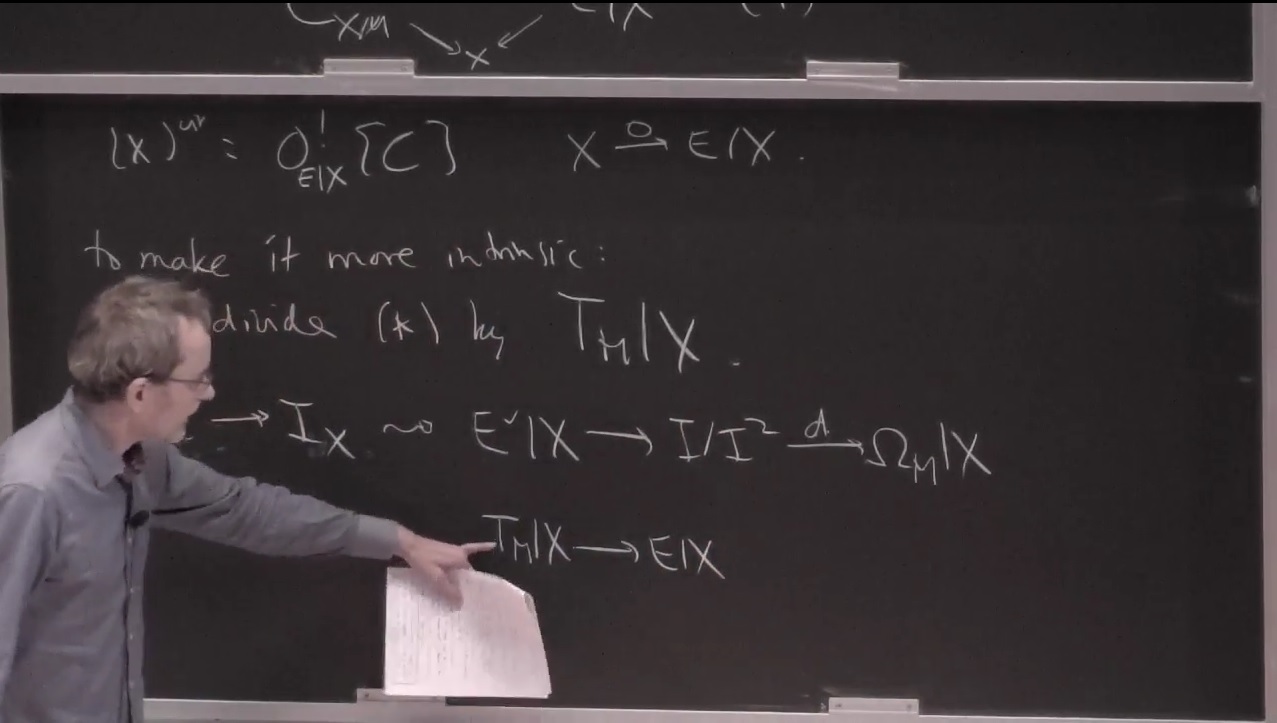 C_{X/M} ↘ X ↙ E|X
[X]^{vir} = 0^!_{E|X} [C] X \xrightarrow{0} E|X.
to make it more intrinsic:
divide (*) by T_M|X.
→ I_X ⇝ E^∨|X → I/I² \xrightarrow{d} Ω_M|X
T_M|X → E|X